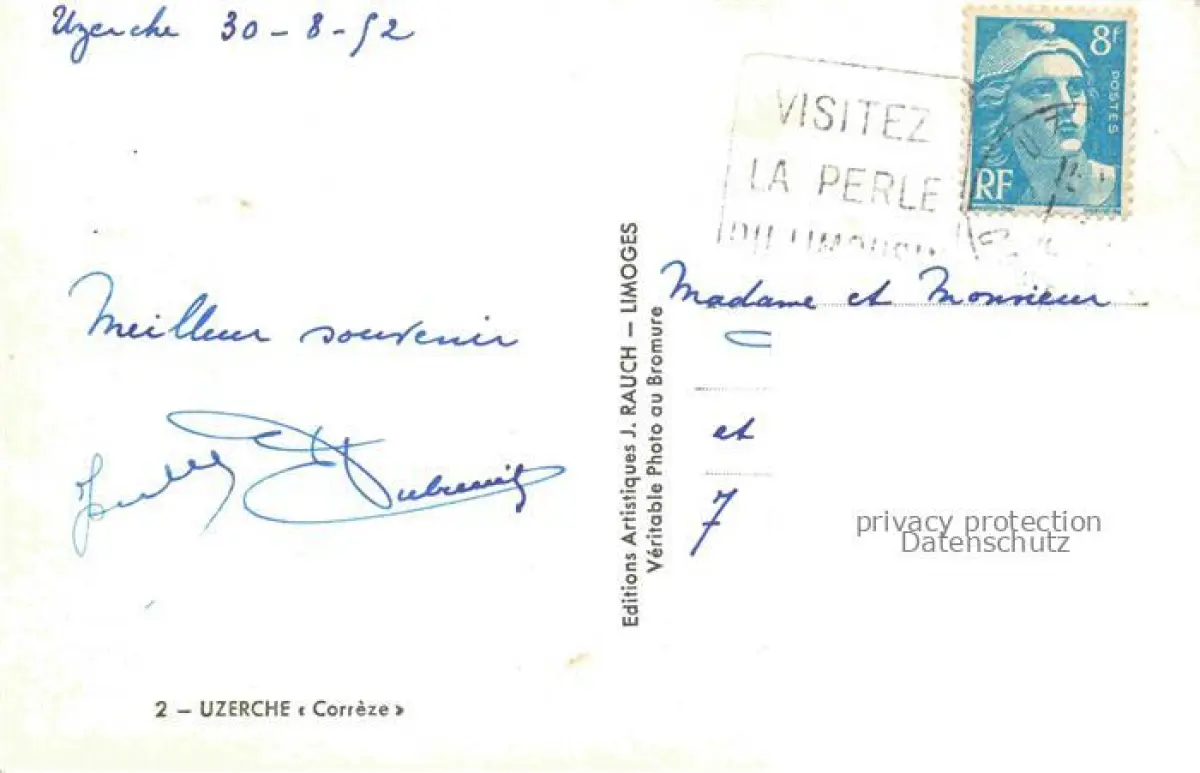 Uzerche 30-8-52
8f
POSTES
RF
VISITEZ
LA PERLE
DU LIMOUSIN
Meilleur souvenir
Madame et Monsieur
et
7
Editions Artistiques J. RAUCH – LIMOGES
Véritable Photo au Bromure
privacy protection
Datenschutz
2 – UZERCHE « Corrèze »